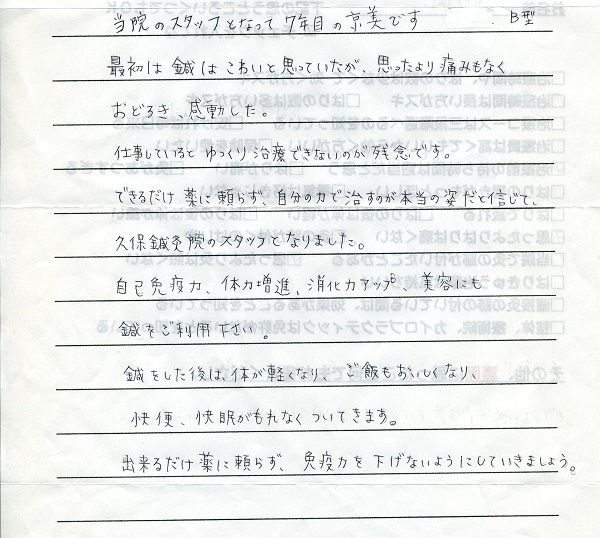 当院のスタッフとなって7年目の京美です　B型
最初は鍼はこわいと思っていたが、思ったより痛みもなく
おどろき、感動した。
仕事しているとゆっくり治療できないのが残念です。
できるだけ薬に頼らず、自分の力で治すのが本当の姿だと信じて、
久保鍼灸院のスタッフとなりました。
自己免疫力、体力増進、消化力アップ、美容にも
鍼をご利用下さい。
鍼をした後は、体が軽くなり、ご飯もおいしくなり、
快便、快眠がもれなくついてきます。
出来るだけ薬に頼らず、免疫力を下げないようにしていきましょう。